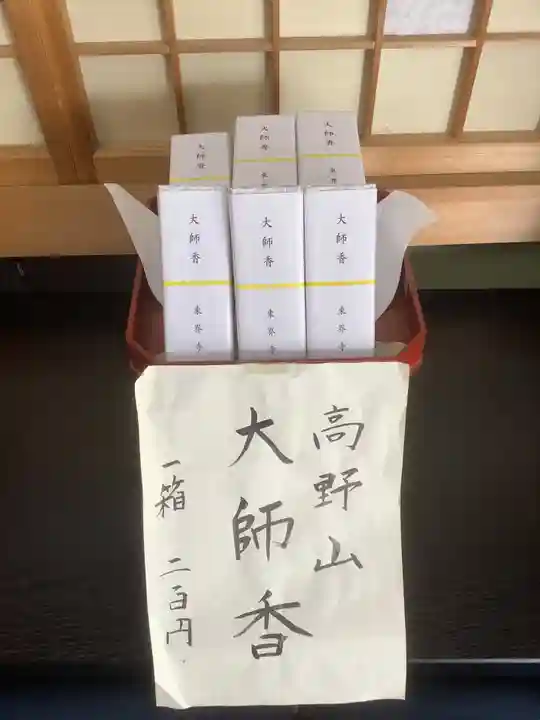 大師香
大師香
東
大師香
東界
大師香
東界寺
大師香
東界寺
大師香
東界寺
高野山
大師香
一箱 二百円